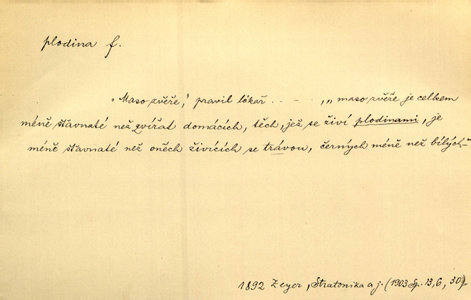 plodina f.
„Maso zvěře,“ pravil lékař . . - - . , „maso zvěře je celkem
méně šťavnaté než zvířat domácích, těch, jež se živí plodinami, je
méně šťavnaté než oněch živících se trávou, černých méně než bílých.“
1892 Zeyer, Stratonika a j. (1903 Sp. 13, 6, 30).